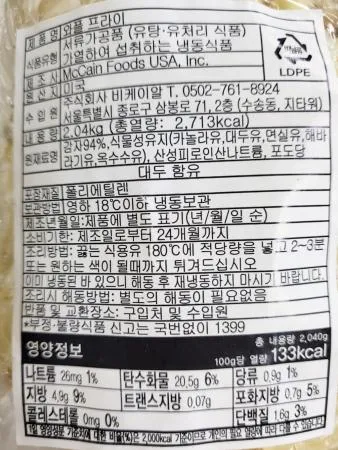 제 품 명 와플 프라이
식품유형 서류가공품 (유탕·유처리 식품)
가열하여 섭취하는 냉동식품
제 조 사 McCain Foods USA, Inc.
원 산 지 미국
수 입 원 주식회사 비케이알 T. 0502-761-8924
서울특별시 종로구 삼봉로 71, 2층 (수송동, 지타워)
내 용 량 2.04kg (총열량: 2,713kcal)
원재료명 감자94%, 식물성유지(카놀라유,대두유,면실유,해바
라기유,옥수수유), 산성피로인산나트륨, 포도당
대두 함유
포장재질 폴리에틸렌
보관방법 영하 18℃이하 냉동보관
제조년월일:제품에 별도 표기(년/월/일 순)
소비기한: 제조일로부터 24개월까지
조리방법: 끓는 식용유 180℃에 적당량을 넣고 2~3분
또는 원하는 색이 될때까지 튀겨드십시오
이미 냉동된 바 있으니 해동 후 재냉동하지 마시기 바랍니다.
조리시 해동방법: 별도의 해동이 필요없음
반품 및 교환장소: 구입처 및 수입원
*부정·불량식품 신고는 국번없이 1399
LDPE
영양정보
총 내용량 2,040g
100g당 열량 133kcal
나트륨 26mg 1% 탄수화물 20.5g 6% 당류 0.9g 1%
지방 4.9g 9% 트랜스지방 0.07g 포화지방 0.7g 5%
콜레스테롤 0mg 0% 단백질 1.6g 3%
1일 영양성분 기준치에 대한 비율(%)은 2,000kcal 기준이므로 개인의 필요 열량에 따라 다를 수 있습니다